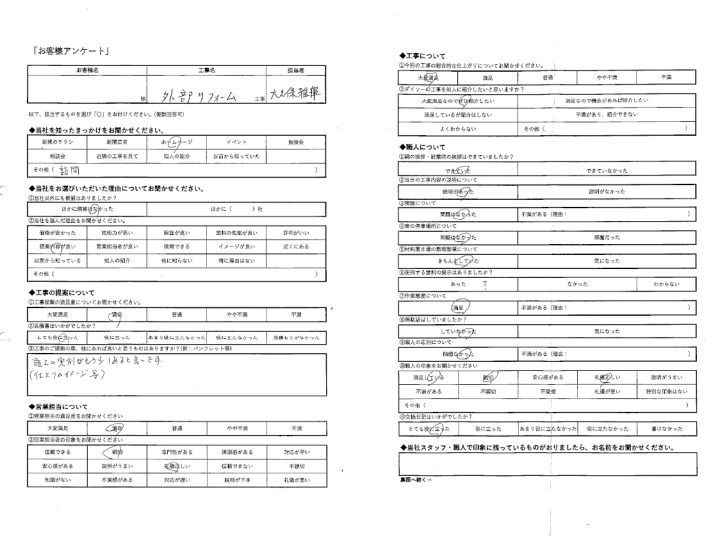 「お客様アンケート」
お客様名 工事名 担当者
様 外部リフォーム 工事
以下、該当するものを選び「○」をお付けください。(複数回答可)
◆当社を知ったきっかけをお聞かせください。
新聞のチラシ 新聞広告 ホームページ イベント 勉強会
相談会 近隣の工事を見て 知人の紹介 以前から知っていた
その他( 訪問 )
◆当社をお選びいただいた理由についてお聞かせください。
①当社以外にも候補はありましたか?
ほかに候補はなかった ほかに( )社
②当社を選んだ理由をお聞かせください。
価格が良かった 技術力が高い 保証が良い 塗料の性能が良い 評判がいい
提案内容が良い 営業担当者が良い 信用できる イメージが良い 近くにある
以前から知っている 知人の紹介 他に知らない 特に理由はない
その他( )
◆工事の提案について
①工事提案の満足度についてお聞かせください。
大変満足 満足 普通 やや不満 不満
②見積書はいかがでしたか?
とても役に立った 役に立った あまり役に立たなかった 役に立たなかった 見積もりがなかった
③工事のご提案の際、他にあれば良いと思うものはありますか?(例:パンフレット等)
施工の実例がもう少しあると良いです。
(仕上りのイメージ等)
◆営業担当について
①営業担当者の満足度をお聞かせください
大変満足 満足 普通 やや不満 不満
②営業担当者の印象をお聞かせください
信頼できる 親切 専門性がある 清潔感がある 対応が早い
安心感がある 説明がうまい 礼儀正しい 信頼できない 不親切
知識がない 不潔感がある 対応が遅い 説明が下手 礼儀が悪い
◆工事について
①今回の工事の総合的な仕上がりについてお聞かせください。
大変満足 満足 普通 やや不満 不満
②ダイソーの工事を知人に紹介したいと思いますか?
大変満足なのでぜひ紹介したい 満足なので機会があれば紹介したい
満足しているが紹介はしない 不満があり、紹介できない
よくわからない その他( )
◆職人について
①朝の挨拶・終業時の挨拶はできていましたか?
できていた できていなかった
②当日の工事内容の説明について
説明があった 説明がなかった
③喫煙について
問題はなかった 不満がある(理由:
④車の停車場所について
問題はなかった 邪魔だった
⑤材料置き場の整理整頓について
きちんとしていた 気になった
⑥使用する塗料の提示はありましたか?
あった ? なかった わからない
⑦作業態度について
満足 不満がある(理由:
⑧携帯電話はしていましたか?
していなかった 気になった
⑨職人の応対について
問題なかった 不満がある(理由:
⑩職人の印象をお聞かせください
満足している 親切 安心感がある 礼儀正しい 説明がうまい
不満がある 不親切 不潔感 礼儀が悪い 特別な印象はない
その他( )
⑪交換日記はいかがでしたか?
とても役に立った 役に立った あまり役に立たなかった 役に立たなかった 書けなかった
◆当社スタッフ・職人で印象に残っているものがおりましたら、お名前をお聞かせください。
裏面へ続く→